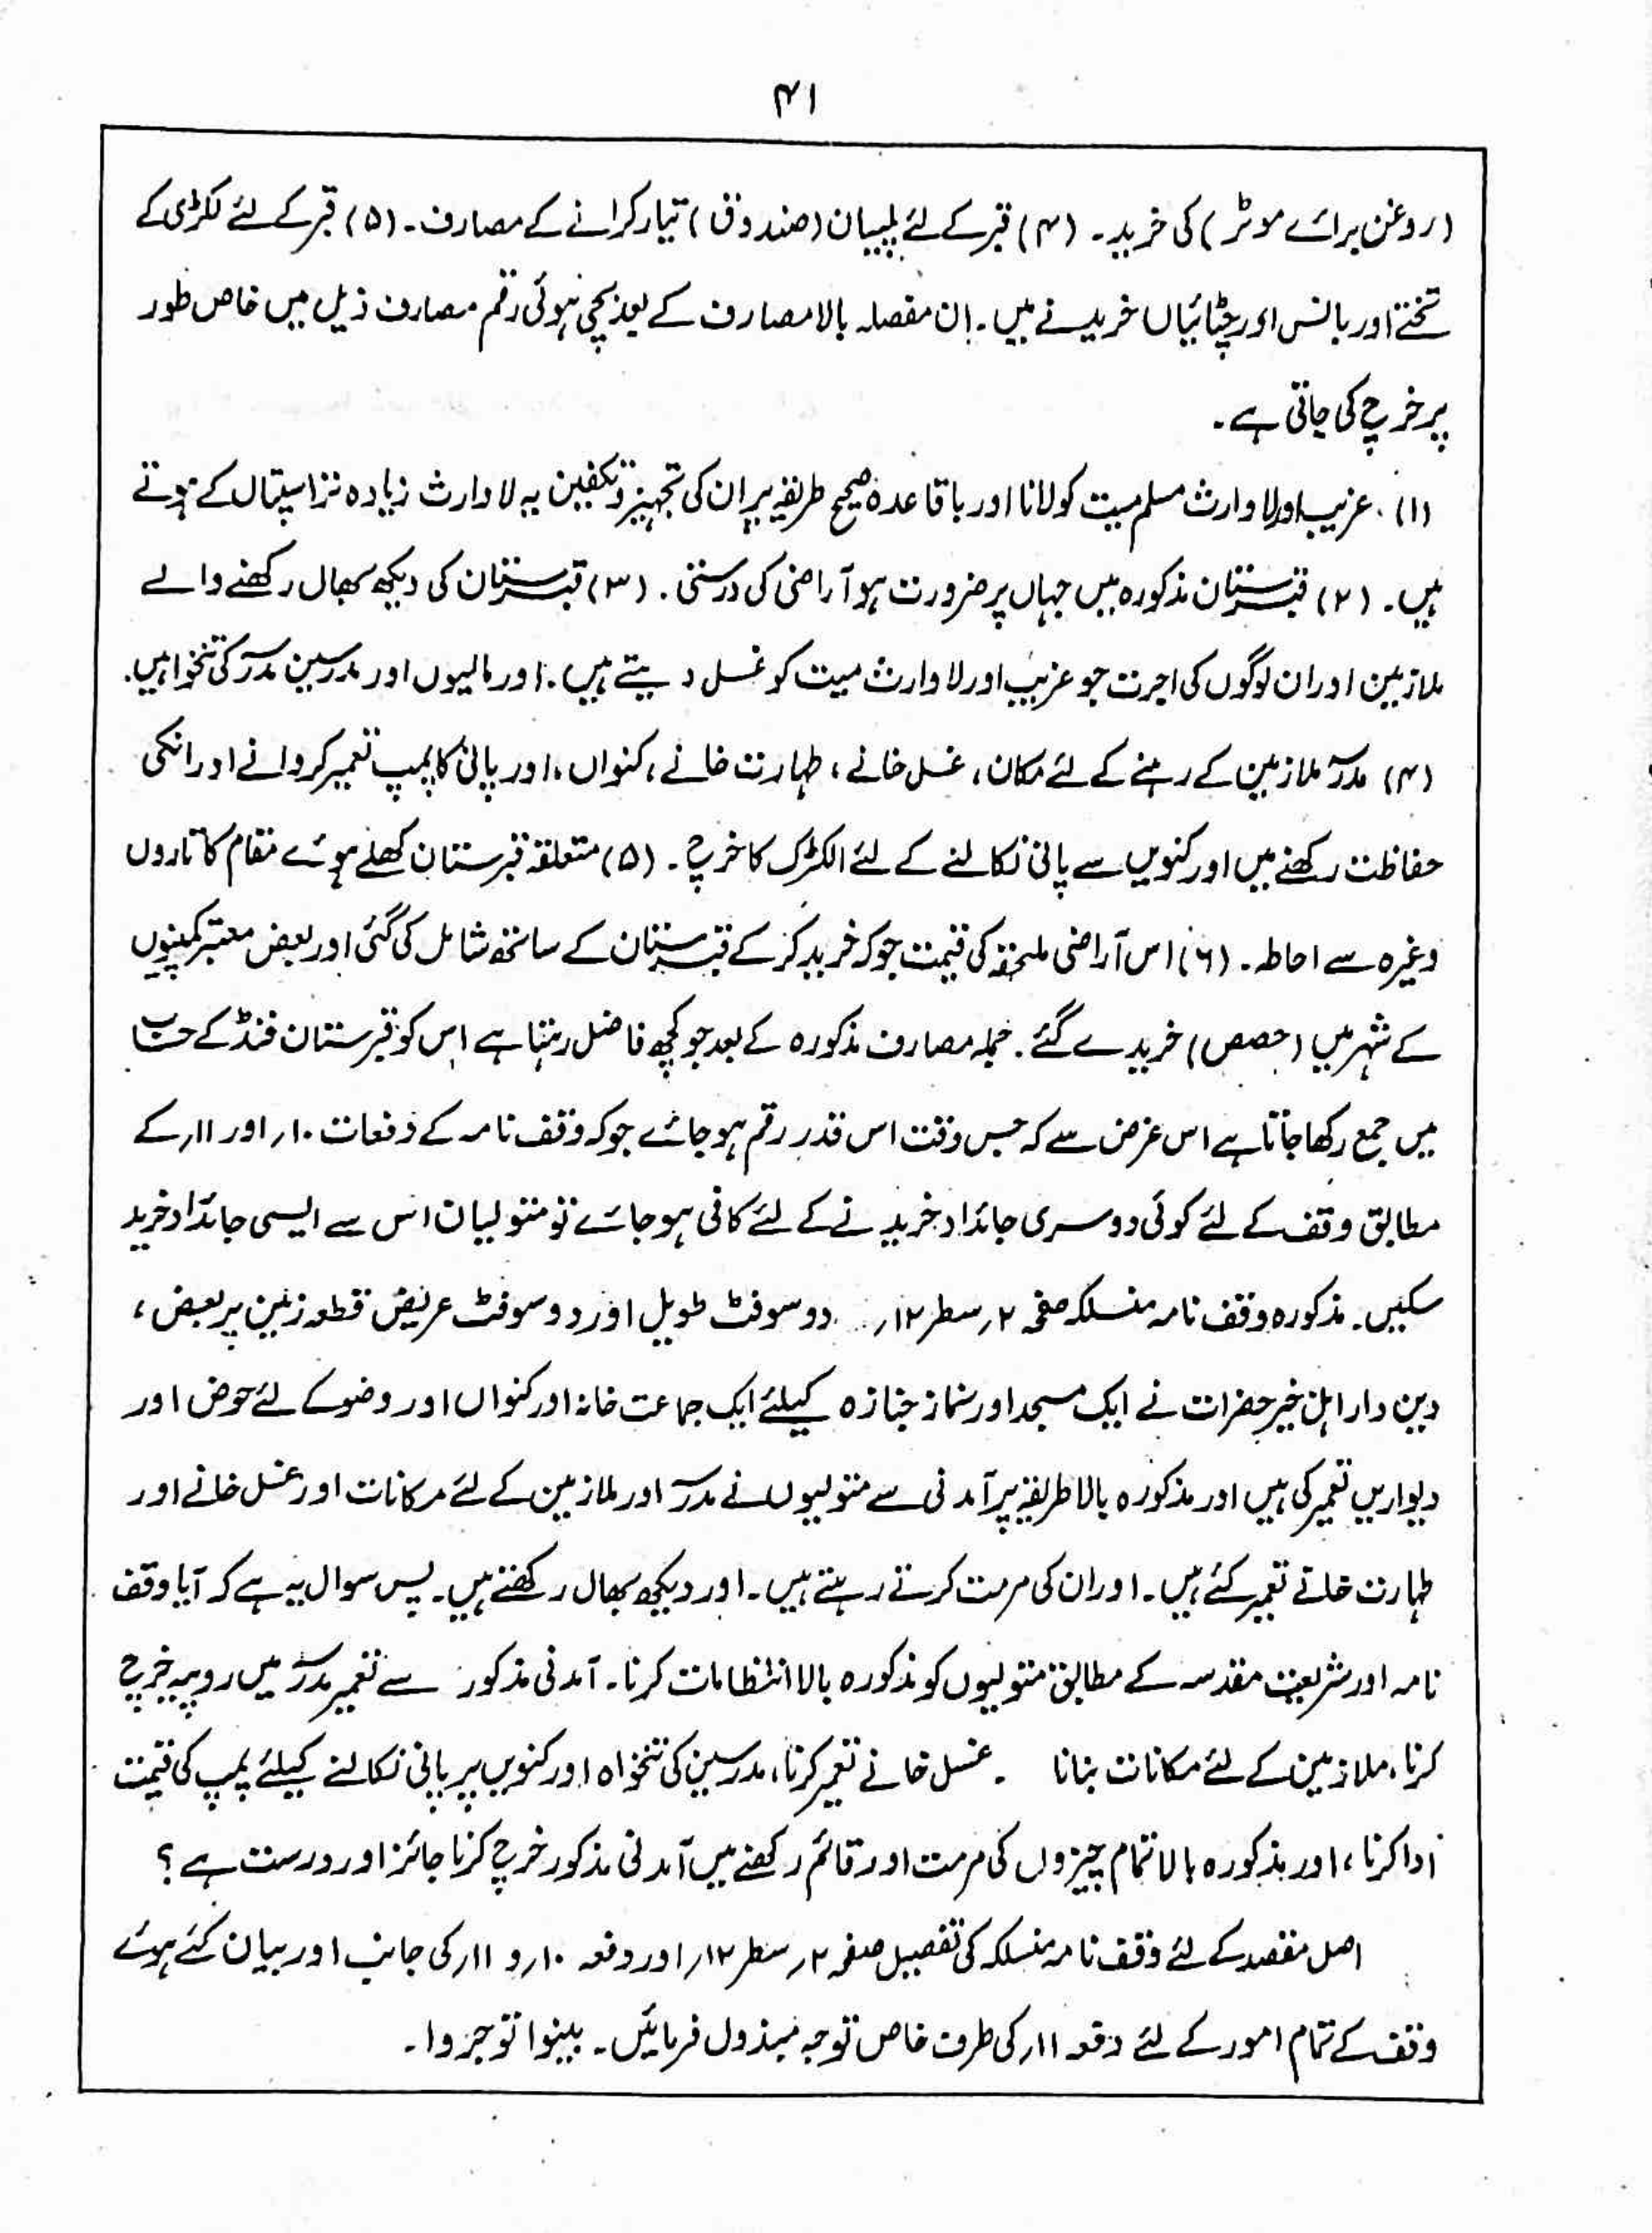 ۴۱
(روغن برائے موٹر) کی خرید۔ (۴) قبر کے لئے پلپیان (صندوق) تیار کرانے کے مصارف۔ (۵) قبر کے لئے لکڑی کے
تختے اور بانس اور چٹائیاں خریدنے میں۔ ان مفصلہ بالا مصارف کے بعد بچی ہوئی رقم مصارف ذیل میں خاص طور
پر خرچ کی جاتی ہے۔
(۱) غریب اور لا وارث مسلم میت کو لانا اور باقاعدہ صحیح طریقہ پر ان کی تجہیز و تکفین یہ لا وارث زیادہ تر اسپتال کے ہوتے
ہیں۔ (۲) قبرستان مذکورہ میں جہاں پر ضرورت ہو آراضی کی درستی۔ (۳) قبرستان کی دیکھ بھال رکھنے والے
ملازمین اور ان لوگوں کی اجرت جو غریب اور لا وارث میت کو غسل دیتے ہیں۔ اور مالیوں اور مدرسین مدرسہ کی تنخواہیں۔
(۴) مدرسہ ملازمین کے رہنے کے لئے مکان، غسل خانے، طہارت خانے، کنواں، اور پانی کا پمپ تعمیر کروانے اور انکی
حفاظت رکھنے میں اور کنویں سے پانی نکالنے کے لئے الکٹرک کا خرچ۔ (۵) متعلقہ قبرستان کھلے ہوئے مقام کا تاروں
وغیرہ سے احاطہ۔ (۶) اس آراضی ملحقہ کی قیمت جو کہ خرید کر کے قبرستان کے ساتھ شامل کی گئی اور بعض معتبر کمپنیوں
کے شہر میں (حصص) خریدے گئے۔ جملہ مصارف مذکورہ کے بعد جو کچھ فاضل رہتا ہے اس کو قبرستان فنڈ کے حساب
میں جمع رکھا جاتا ہے اس غرض سے کہ جس وقت اس قدر رقم ہو جائے جو کہ وقف نامہ کے دفعات ۱۰؍ اور ۱۱؍ کے
مطابق وقف کے لئے کوئی دوسری جائداد خریدنے کے لئے کافی ہو جائے تو متولیان اس سے ایسی جائداد خرید
سکیں۔ مذکورہ وقف نامہ منسلکہ صفحہ ۲؍ سطر ۱۲؍ دو سوفٹ طویل اور دو سوفٹ عریض قطعہ زمین پر بعض،
دین دار اہل خیر حضرات نے ایک مسجد اور نماز جنازہ کیلئے ایک جماعت خانہ اور کنواں اور وضو کے لئے حوض اور
دیواریں تعمیر کی ہیں اور مذکورہ بالا طریقہ پر آمدنی سے متولیوں نے مدرسہ اور ملازمین کے لئے مکانات اور غسل خانے اور
طہارت خانے تعمیر کئے ہیں۔ اور ان کی مرمت کرتے رہتے ہیں۔ اور دیکھ بھال رکھتے ہیں۔ پس سوال یہ ہے کہ آیا وقف
نامہ اور شریعت مقدسہ کے مطابق متولیوں کو مذکورہ بالا انتظامات کرنا۔ آمدنی مذکور سے تعمیر مدرسہ میں روپیہ خرچ
کرنا، ملازمین کے لئے مکانات بنانا ۔ غسل خانے تعمیر کرنا، مدرسین کی تنخواہ اور کنویں پر پانی نکالنے کیلئے پمپ کی قیمت
ادا کرنا، اور مذکورہ بالا تمام چیزوں کی مرمت اور قائم رکھنے میں آمدنی مذکور خرچ کرنا جائز اور درست ہے؟
اصل مقصد کے لئے وقف نامہ منسلکہ کی تفصیل صفحہ ۲؍ سطر ۱۲؍ اور دفعہ ۱۰؍ و ۱۱؍ کی جانب اور بیان کئے ہوئے
وقف کے تمام امور کے لئے دفعہ ۱۱؍ کی طرف خاص توجہ مبذول فرمائیں۔ بینوا توجروا۔